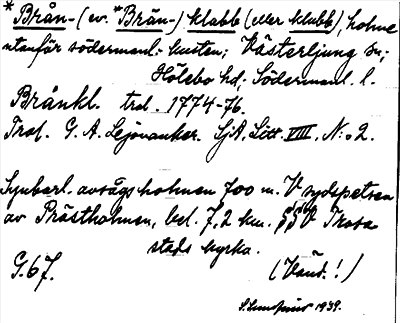 * Brån- (ev. *Brän-) klabb (eller klubb), holme
utanför södermanl.-kusten; Västerljung sn;
Hölebo hd, Södermanl. l.
Brånkl. trol. 1774-76.
Trol. G. A. Lejonanker. LjA, Litt. VIII, N:o 2.
Synbarl. avsågs holmen 700 m. V sydspetsen
av Prästholmen, bel. 7,2 km. SSV Trosa
stads kyrka.
G. 67. (Vänd!)
1939.